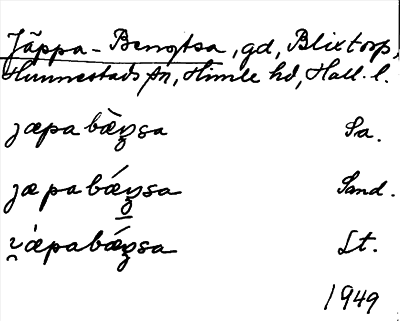 Jäppa-Bengtsa, gd, Blixtorp,
Hunnestads sn, Himle hd, Hall. l.
jæpabæ̀ŋsa Sa.
jæpabǽŋsa Sand.
jæ̀pabǽŋsa Lt.
1949